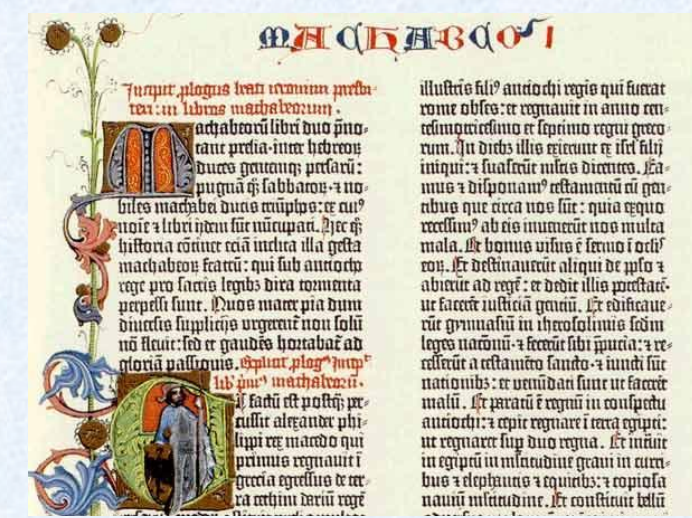 MACHABEOR I
Incipit prologus beati ieronimi presbi-
teri: in libros machabeorum.
Machabeorū libri duo p̄no-
tant prelia·inter hebreoꝝ
duces gentemq; persarū:
pugnā q̄ꝫ sabbatoꝝ·⁊ no-
biles machabei ducis triūphos: ex cuiꝰ
noīe ⁊ libri ijdem sūt nūcupati. Hec q̄ꝫ
historia cōtinet eciā inclita illa gesta
machabeoꝝ fratrū: qui sub antiocho
rege pro sacris legibꝫ dira tormenta
perpessi sunt. Quos mater pia dum
diuersis supplicijs urgerent̄ non solū
nō fleuit: sed et gaudēs hortabat̄ ad
gloriā passionis. Explicit plogꝰ Incipt
lib' primꝰ machabeorū.
Et factū est postq̄ꝫ per-
cussit alexander phi-
lippi rex macedo qui
primus regnauit ī
grecia egressus de ter-
ra cethim dariū regē
illustris filiꝰ antiochi regis qui fuerat
rome obses: et regnauit in anno cen-
tesimotricesimo et septimo regni greco-
rum. In diebꝫ illis exierunt ex isrl̄ filij
iniqui: ⁊ suaserūt ml̄tis dicentes. Ea-
mus ⁊ disponamꝰ testamentū cū gen-
tibus que circa nos sūt: quia exquo
recessimꝰ ab eis inuenerūt nos multa
mala. Et bonus visus ē sermo ī ocl'
eoꝝ. Et destinauerūt aliqui de pplo ⁊
abierūt ad regē: et dedit illis potestatē-
ut facerēt iusticiā genciū. Et edificaue-
rūt gymnasiū in iherosolimis secdm̄
leges nacionū·⁊ fecerūt sibi ꝓpucia: ⁊ re-
cesserūt a testamēto sancto·⁊ iuncti sūt
nationibꝫ: et venūdati sunt ut facerēt
malū. Et paratū ē regnū in conspectu
antiochi: ⁊ cepit regnare ī terra egipti:
ut regnaret sup duo regna. Et intrauit
in egiptū in ml̄titudine graui in curri-
bus ⁊ elephantis ⁊ equitibꝫ: ⁊ copiosa
nauiū ml̄titudine. Et constituit bellū